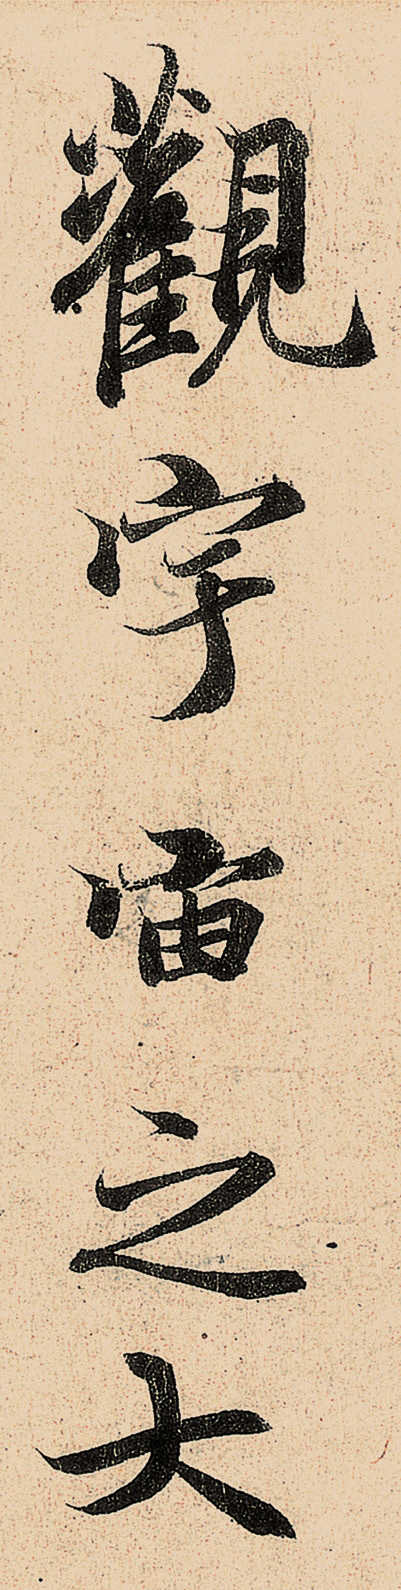 觀宇宙之大